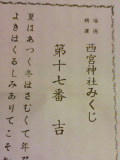 開運
西宮神社みくじ
第十七番 吉
夏はあつく冬はさむくて年
よきはくるしみありてこそ